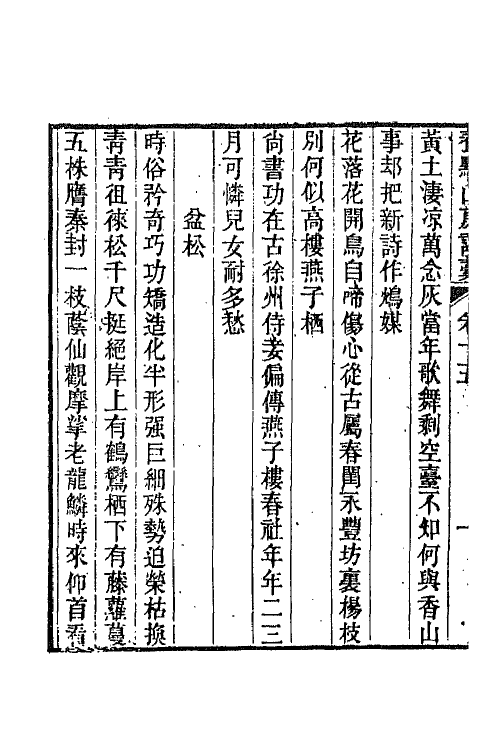 卷十五
黃土淒凉萬念灰當年歌舞剩空臺不知何與香山
事却把新詩作鴆媒
花落花開鳥自啼傷心從古屬春閨永豐坊裏楊枝
別何似高樓燕子栖
尙書功在古徐州侍妾偏傳燕子樓春社年年二三
月可憐兒女耐多愁
盆松
時俗矜奇巧功矯造化半形强巨細殊勢迫榮枯換
靑靑徂徠松千尺挺絕岸上有鶴鸞栖下有藤蘿蔓
五株膺秦封一枝蔭仙觀摩挲老龍鱗時來仰首看